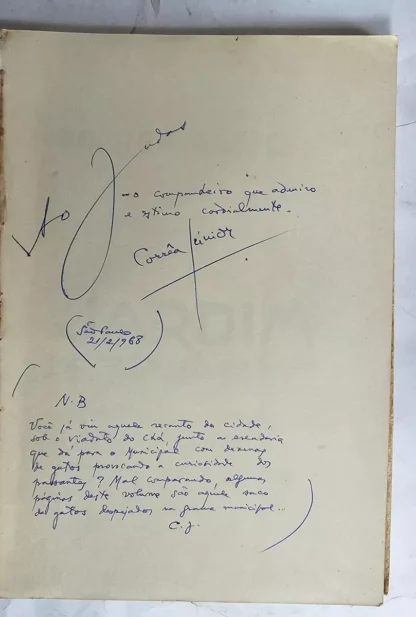 Ao Judas
- o companheiro que admiro
e estimo cordialmente.
Corrêa Júnior
(São Paulo
21/2/968)
N.B
Você já viu aquele recanto da cidade,
sob o Viaduto do Chá, junto a escadaria
que dá para o Municipal com dezenas
de gatos provocando a curiosidade dos
passantes? Mal comparando, algumas
páginas deste volume são aquele saco
de gatos despejados na grama municipal...
C. J.